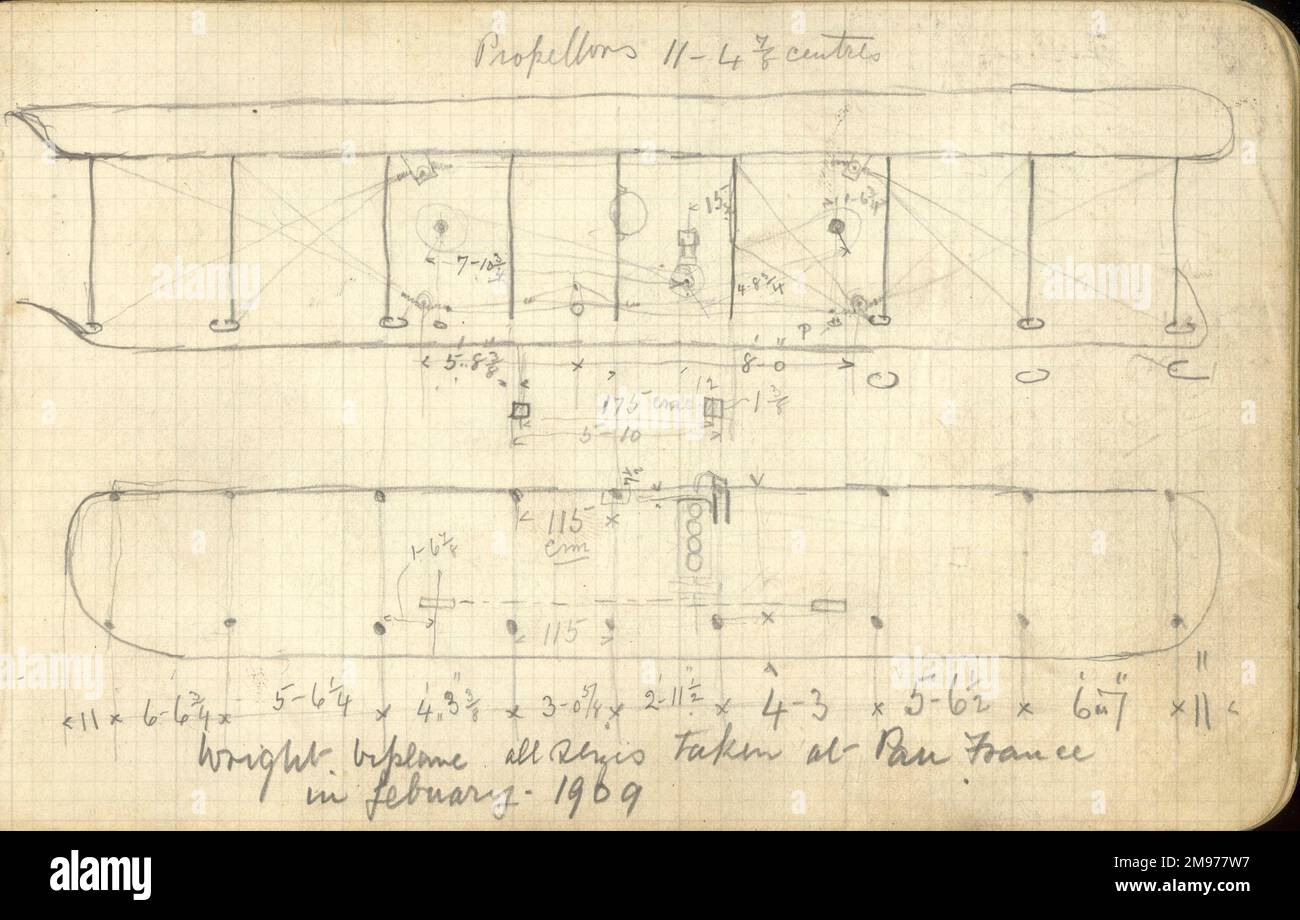 Propellors 11-4 7/8 centres
1 5/
1-6 3/4
7-10 3/4
4-8 3/4
P
5'-8 3/8"
8'-0"
12
175
1 3/8
5-10
115
cm
1-6 7/8
115
11 × 6'-6 3/4 × 5-6 1/4 × 4'-3 3/8" × 3-0 5/ × 2'-11 1/2" × 4-3 × 5-6 1/2 × 6'-7" × 11"
Wright biplane all taken at Pau France
in febuary. 1909
alamy
alamy
Image ID: 2M977W7
www.alamy.com